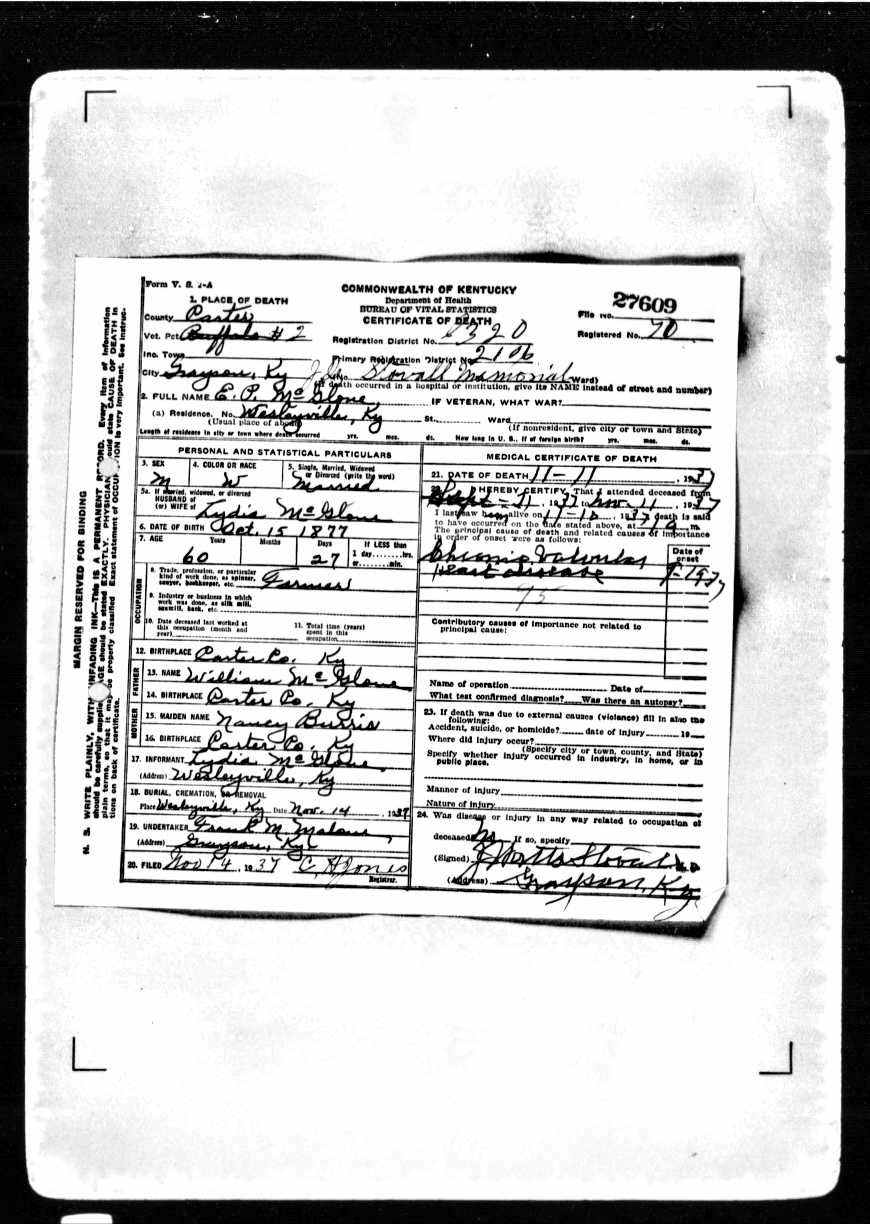 Form V. S. 1-A
COMMONWEALTH OF KENTUCKY
Department of Health
BUREAU OF VITAL STATISTICS
CERTIFICATE OF DEATH
File No. 27609
Registered No. 70
1. PLACE OF DEATH
County Carter
Vot. Pct. Buffalo # 2
Registration District No.
Inc. Town
Primary Registration District No. 2106
City Grayson, Ky No. Stovall Memorial Ward)
(If death occurred in a hospital or institution, give its NAME instead of street and number)
2. FULL NAME E. P. McGlone IF VETERAN, WHAT WAR?
(a) Residence. No. Wesleyville, Ky St. Ward
(Usual place of abode) (If nonresident, give city or town and State)
Length of residence in city or town where death occurred yrs. mos. ds. How long in U. S., if of foreign birth? yrs. mos. ds.
PERSONAL AND STATISTICAL PARTICULARS
3. SEX M
4. COLOR OR RACE W
5. Single, Married, Widowed or Divorced (write the word) Married
5a. If married, widowed, or divorced
HUSBAND of
(or) WIFE of Lydia McGlone
6. DATE OF BIRTH Oct. 15 1877
7. AGE Years 60 Months Days 27 If LESS than 1 day......hrs. or......min.
OCCUPATION
8. Trade, profession, or particular kind of work done, as spinner, sawyer, bookkeeper, etc. Farmer
9. Industry or business in which work was done, as silk mill, sawmill, bank, etc.
10. Date deceased last worked at this occupation (month and year)
11. Total time (years) spent in this occupation
12. BIRTHPLACE Carter Co. Ky
FATHER
13. NAME William McGlone
14. BIRTHPLACE Carter Co, Ky
MOTHER
15. MAIDEN NAME Nancy Burris
16. BIRTHPLACE Carter Co, Ky
17. INFORMANT Lydia McGlone
(Address) Wesleyville, Ky
18. BURIAL, CREMATION, OR REMOVAL
Place Wesleyville, Ky Date Nov. 14, 1937
19. UNDERTAKER Frank M. Malone
(Address) Grayson, Ky
20. FILED Nov 14, 1937 C. H. Jones
Registrar.
MEDICAL CERTIFICATE OF DEATH
21. DATE OF DEATH 11-11, 1937
22. I HEREBY CERTIFY, That I attended deceased from
Sept - 11, 1937 to Nov. 11, 1937
I last saw him alive on 11-10, 1937 death is said
to have occurred on the date stated above, at m.
The principal cause of death and related causes of importance
in order of onset were as follows:
Date of onset
Chronic Valvular
Heart disease 9-1937
95
Contributory causes of importance not related to
principal cause:
Name of operation Date of
What test confirmed diagnosis? Was there an autopsy?
23. If death was due to external causes (violence) fill in also the
following:
Accident, suicide, or homicide? date of injury 19
Where did injury occur?
(Specify city or town, county, and State)
Specify whether injury occurred in industry, in home, or in
public place.
Manner of injury
Nature of injury
24. Was disease or injury in any way related to occupation of
deceased? No If so, specify
(Signed) J Watts Stovall M. D.
(Address) Grayson, Ky.
MARGIN RESERVED FOR BINDING
N. B. WRITE PLAINLY, WITH UNFADING INK—This IS A PERMANENT RECORD. Every item of information
should be carefully supplied. AGE should be stated EXACTLY. PHYSICIANS should state CAUSE OF DEATH in
plain terms, so that it may be properly classified. Exact statement of OCCUPATION is very important. See instruc-
tions on back of certificate.